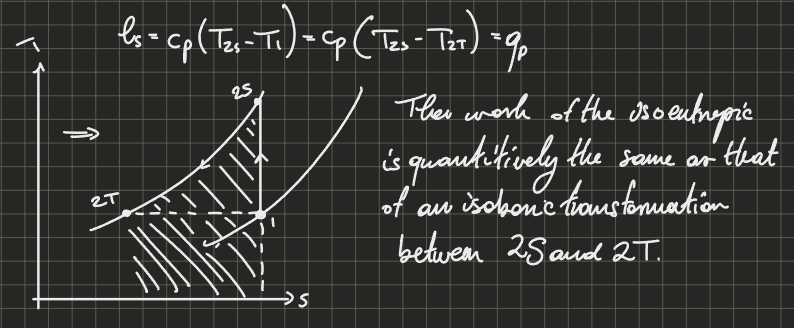 ls = cp(T2s - T1) = cp(T2s - T2T) = qp
T
2S
⇒
2T
1
S
The work of the isoentropic
is quantitively the same as that
of an isobaric transformation
between 2S and 2T.